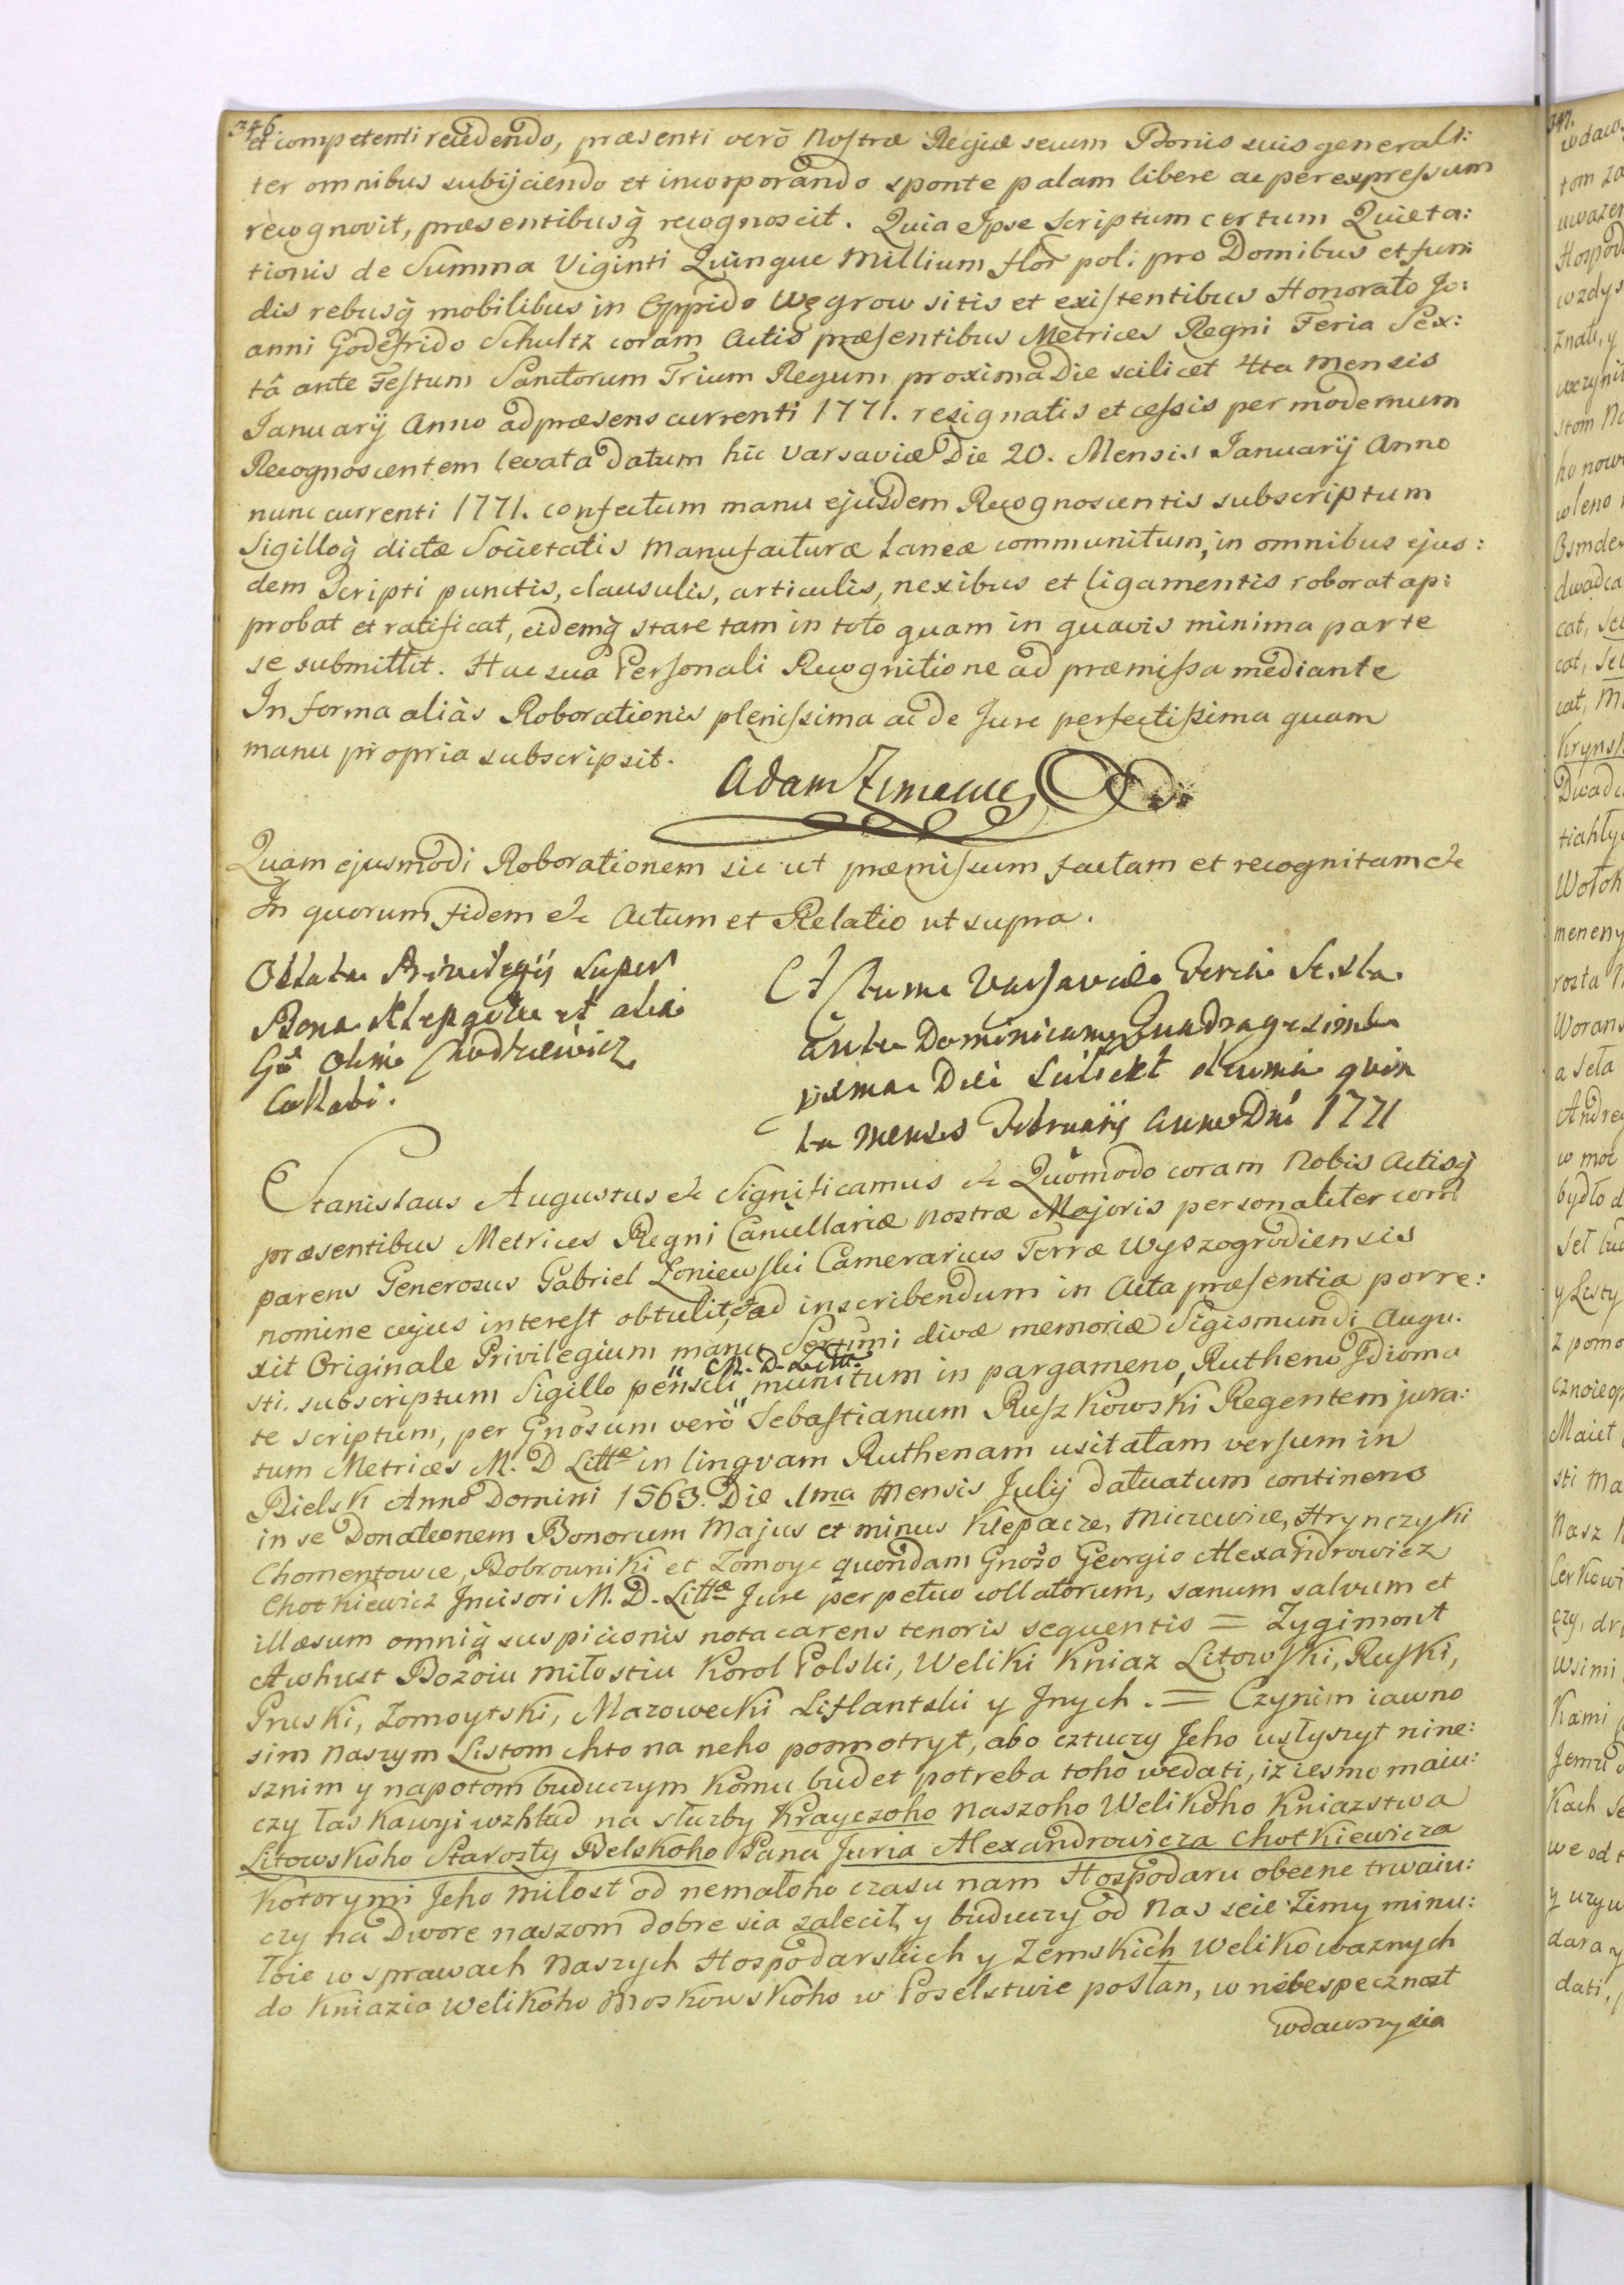 346.
et competenti recedendo, præsenti verò Nostræ Regiæ seu in Bonis suis generali:
ter omnibus subijciendo et incorporando sponte palam libere ac per expressum
recognovit, præsentibusq̀ recognoscit. Quia Ipse Scriptum certum Quieta:
tionis de Summa Viginti Quinque Millium flor̃ pol: pro Domibus et fun:
dis rebusq̀ mobilibus in Oppido Węgrow sitis et existentibus Honorato Jo:
anni Godefrido Schultz coram Actis præsentibus Metrices Regni Feria Sex:
tâ ante Festum Sanctorum Trium Regum proxima Die scilicet 4ta Mensis
Januarij Anno ad præsens currenti 1771. resignatis et cessis per modernum
Recognoscentem levata datum hic Varsaviæ Die 20. Mensis Januarij Anno
nunc currenti 1771. confectum manu ejusdem Recognoscentis subscriptum
Sigilloq̀ dictæ Societatis Manufacturæ Laneæ communitum, in omnibus ejus:
dem Scripti punctis, clausulis, articulis, nexibus et ligamentis roborat ap:
probat et ratificat, eidemq̀ stare tam in toto quam in quavis minima parte
se submittit. Hac sua Personali Recognitione ad præmissa mediante
In forma aliàs Roborationis plenissima ac de Jure perfectissima quam
manu propria subscripsit.
Adam
Quam ejusmodi Roborationem sic ut præmissum factam et recognitam &c
In quorum fidem &c Actum et Relatio ut supra.
Oblata Privilegij super
Bona Klepacze et alia
Gñso Olim Chodkiewicz
Collati.
Actum Varsaviæ Feria Sexta
ante Dominicam Quadragesimæ
proxima Die scilicet decima quin
ta Mensis Februarij Anno Dnĩ 1771
Stanislaus Augustus &c Significamus &c Quomodo coram Nobis Actisq̀
præsentibus Metrices Regni Cancellariæ Nostræ Majoris personaliter com
parens Generosus Gabriel Łoniewski Camerarius Terræ Wyszogrodiensis
nomine cujus interest obtulit, et ad inscribendum in Acta præsentia porre:
xit Originale Privilegium manu Serẽmi divæ memoriæ Sigismundi Augu:
sti subscriptum Sigillo pensili M. D. Littæ munitum in pargameno, Rutheno Idioma
te scriptum, per Gnosum verò Sebastianum Ruszkowski Regentem jura:
tum Metrices M. D Littæ in lingvam Ruthenam usitatam versum in
Bielsk Anno Domini 1563. Die 1ma Mensis Julij datuatum continens
in se Donationem Bonorum Majus et minus Klepacze, Miczewice, Hrynczyki
Chomentowce, Bobrowniki et Zomoyc quondam Gnoso Georgio Alexandrowicz
Chotkiewicz Incisori M. D. Littæ Jure perpetuo collatorum, sanum salvum et
illæsum omniq̀ suspicionis nota carens tenoris sequentis = Zygimont
Awhust Bozoiu miłostiu Korol Polski, Weliki Kniaz Litowski, Ruski,
Pruski, Zomoytski, Mazowecki Liflantski y Jnych. = Czynim iawno
sim Naszym Listom chto na neho posmotryt, abo cztuczy Jeho usłyszyt nine:
sznim y napotom buduczym komu budet potreba toho wedati, iz iesmo maiu:
czy łaskawyi wzhlad na służby Krayczoho Naszoho Welikoho Kniazstwa
Litowskoho Starosty Belskoho Pana Juria Alexandrowicza Chotkiewicza
Kotorymi Jeho Miłost od nemałoho czasu nam Hospodaru obecne trwaiu:
czy na Dwore naszom dobre sia zalecił, y buduczy od Nas seie Zimy minu:
łoie w sprawach Naszych Hospodarskich y Zemskich Welikowaznych
do Kniazia Welikoho Moskowskoho w Poselstwie posłan, w nebespecznost
wdawszysia